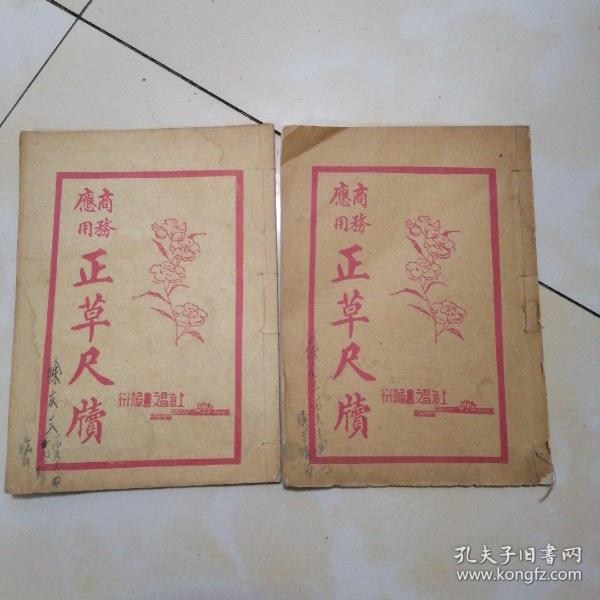 商務
應用
正草尺牘
上海昌文書局印行
商務
應用
正草尺牘
上海昌文書局印行
孔夫子旧书网
www.kongfz.com